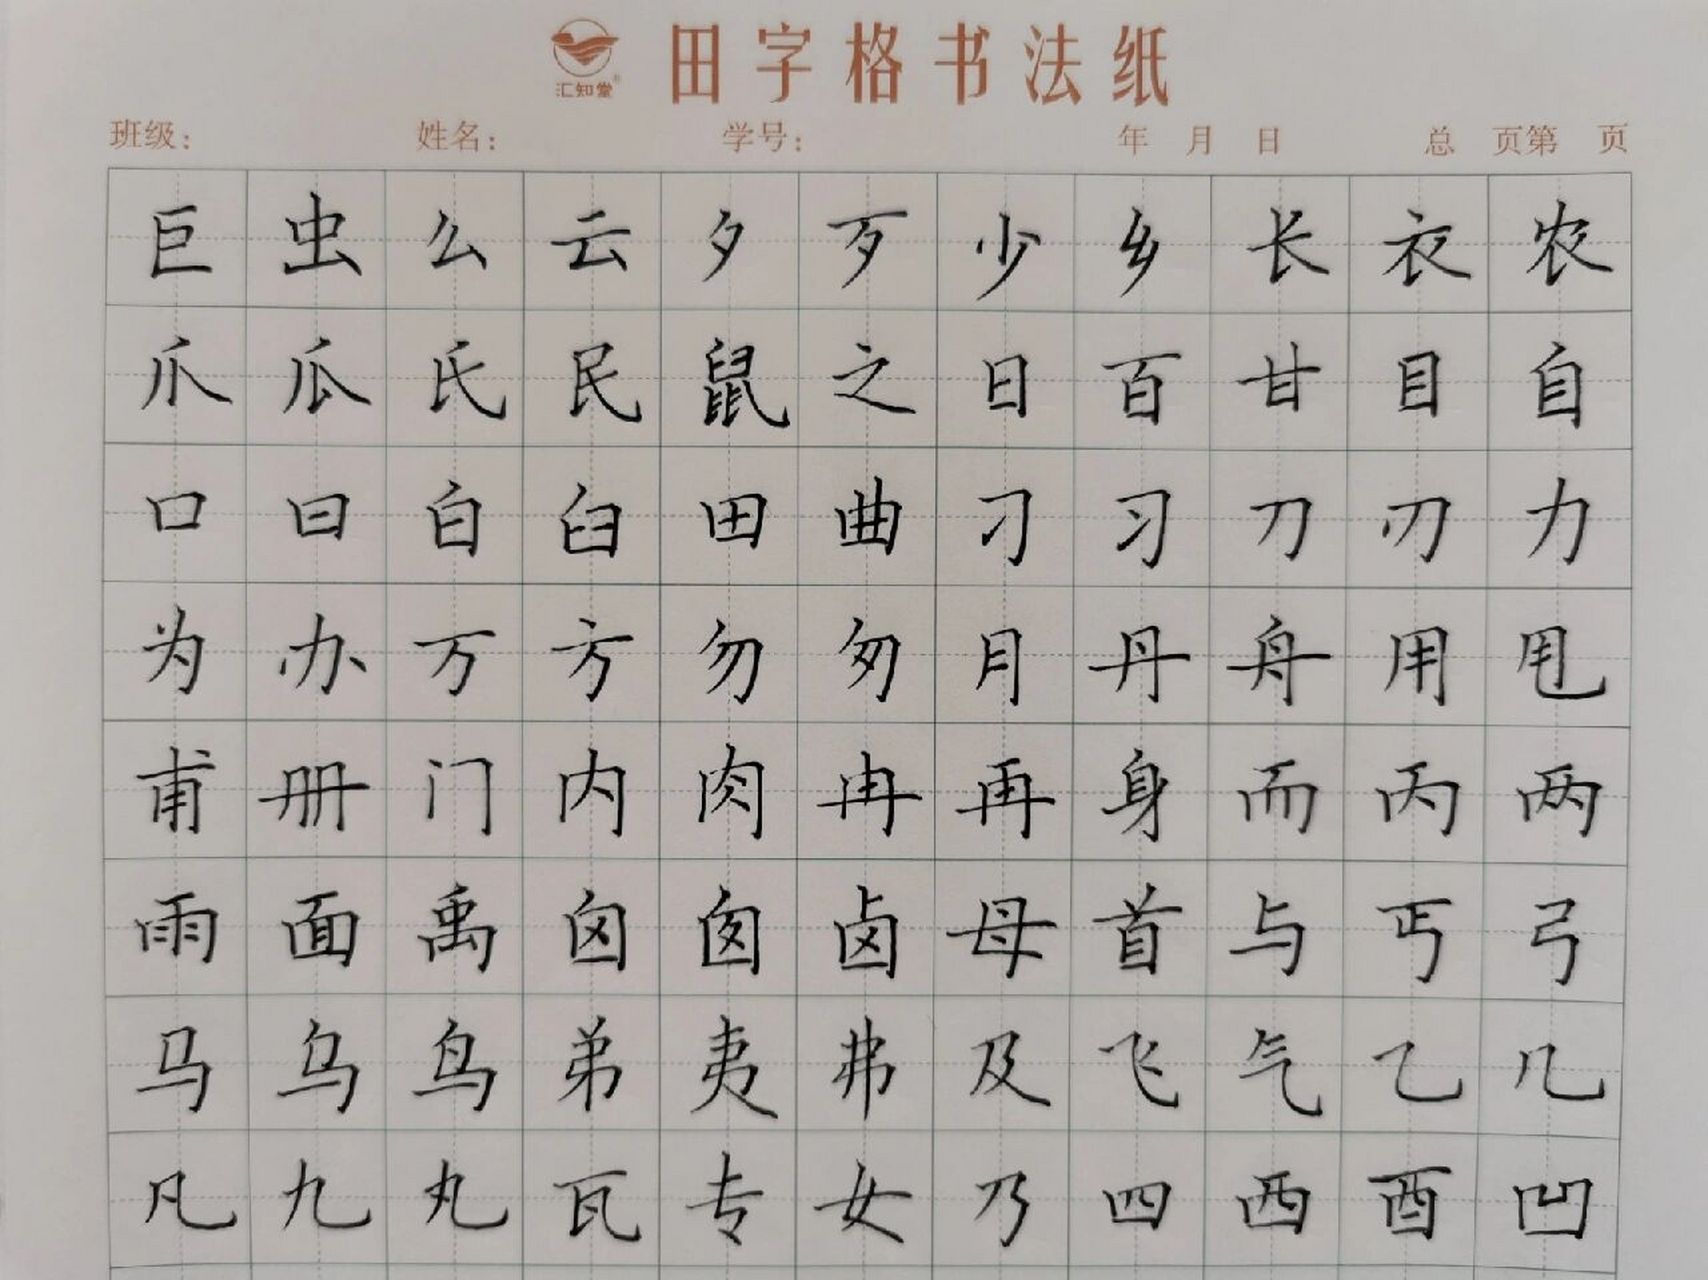 汇知堂®
田字格书法纸
班级： 姓名： 学号： 年 月 日 总 页第 页
巨 虫 么 云 夕 歹 少 乡 长 衣 农
爪 瓜 氏 民 鼠 之 日 百 甘 目 自
口 曰 白 臼 田 曲 刁 习 刀 刃 力
为 办 万 方 勿 匆 月 丹 舟 用 甩
甫 册 门 内 肉 冉 再 身 而 丙 两
雨 面 禹 囟 囱 卤 母 首 与 丐 弓
马 乌 鸟 弟 夷 弗 及 飞 气 乙 几
凡 九 丸 瓦 专 女 乃 四 西 酉 凹